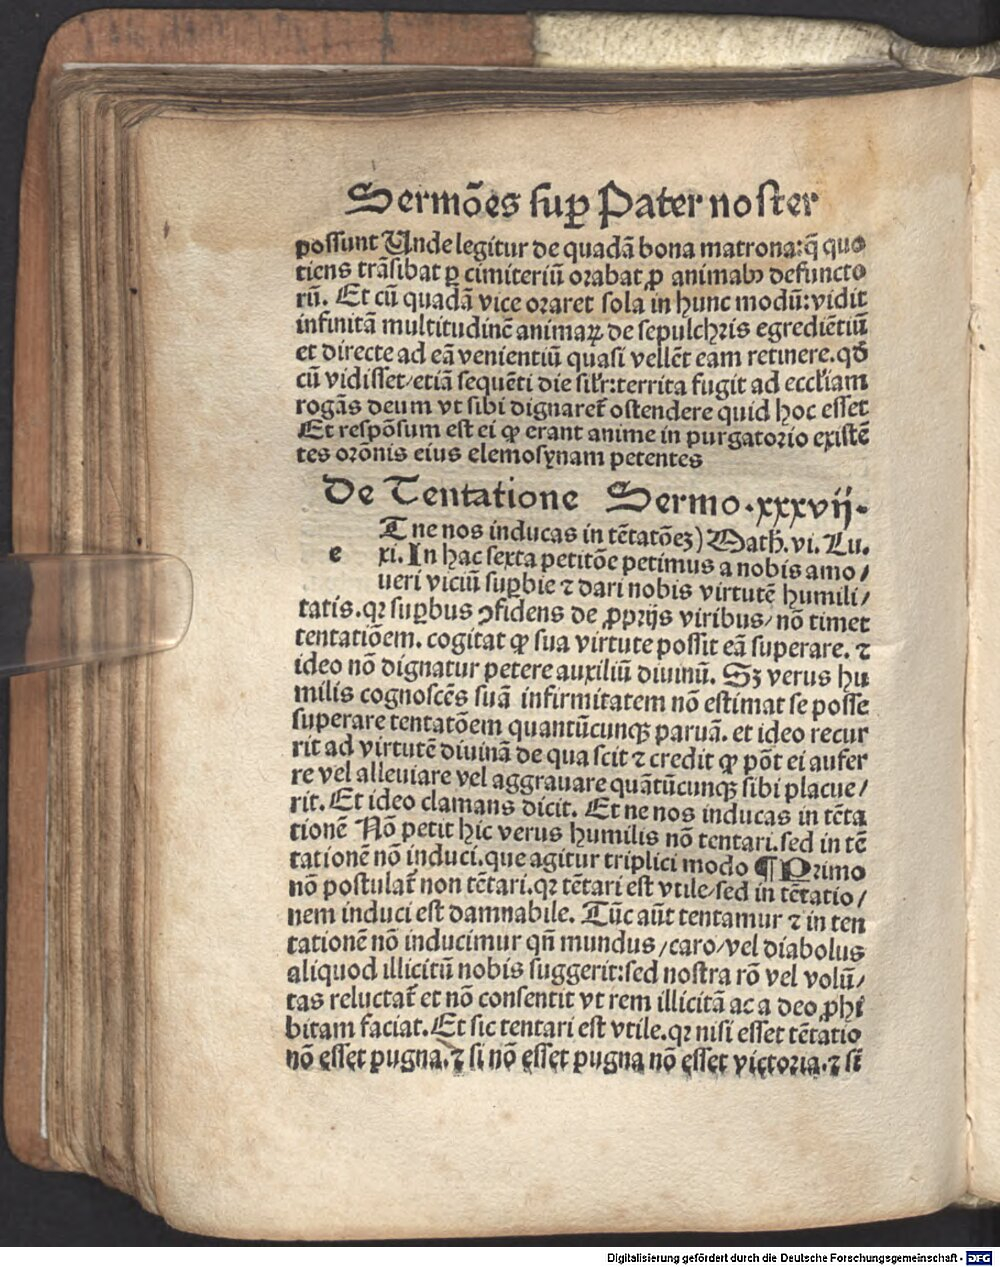 Sermões suꝑ Pater noster
possunt Unde legitur de quadã bona matrona: q̃ quo
tiens trãsibat ꝑ cimiteriũ orabat ꝓ animabꝰ defuncto
rũ. Et cũ quadã vice oraret sola in hunc modũ: vidit
infinitã multitudinẽ animaꝝ de sepulchris egrediẽtiũ
et directe ad eã venientiũ quasi vellẽt eam retinere. qđ
cũ vidisset/etiã sequẽti die silr̃: territa fugit ad eccl̃iam
rogãs deum vt sibi dignaret̃ ostendere quid hoc esset
Et respõsum est ei ꝙ erant anime in purgatorio existẽ
tes orõnis eius elemosynam petentes
De Tentatione Sermo .xxxvij.
T ne nos inducas in tẽtatõeꝫ) Math. vi. Lu.
e xi. In hac sexta petitõe petimus a nobis amo/
ueri viciũ suꝑbie ⁊ dari nobis virtutẽ humili/
tatis. qꝛ suꝑbus ↄfidens de ꝓprijs viribus/ nõ timet
tentatiõem. cogitat ꝙ sua virtute possit eã superare. ⁊
ideo nõ dignatur petere auxiliũ diuinũ. Sꝫ verus hu
milis cognoscẽs suã infirmitatem nõ estimat se posse
superare tentatõem quantũcunqꝫ paruã. et ideo recur
rit ad virtutẽ diuinã de qua scit ⁊ credit ꝙ põt ei aufer
re vel alleuiare vel aggrauare quãtũcunqꝫ sibi placue/
rit. Et ideo clamans dicit. Et ne nos inducas in tẽta
tionẽ Nõ petit hic verus humilis nõ tentari. sed in tẽ
tationẽ nõ induci. que agitur triplici modo ¶ Primo
nõ postulat̃ non tẽtari. qꝛ tẽtari est vtile/sed in tẽtatio/
nem induci est damnabile. Tũc aũt tentamur ⁊ in ten
tationẽ nõ inducimur qñ mundus/caro/vel diabolus
aliquod illicitũ nobis suggerit: sed nostra rõ vel volũ/
tas reluctat̃ et nõ consentit vt rem illicitã ac a deo ꝓhi
bitam faciat. Et sic tentari est vtile. qꝛ nisi esset tẽtatio
nõ esset pugna. ⁊ si nõ esset pugna nõ esset victoria. ⁊ si
Digitalisierung gefördert durch die Deutsche Forschungsgemeinschaft - DFG